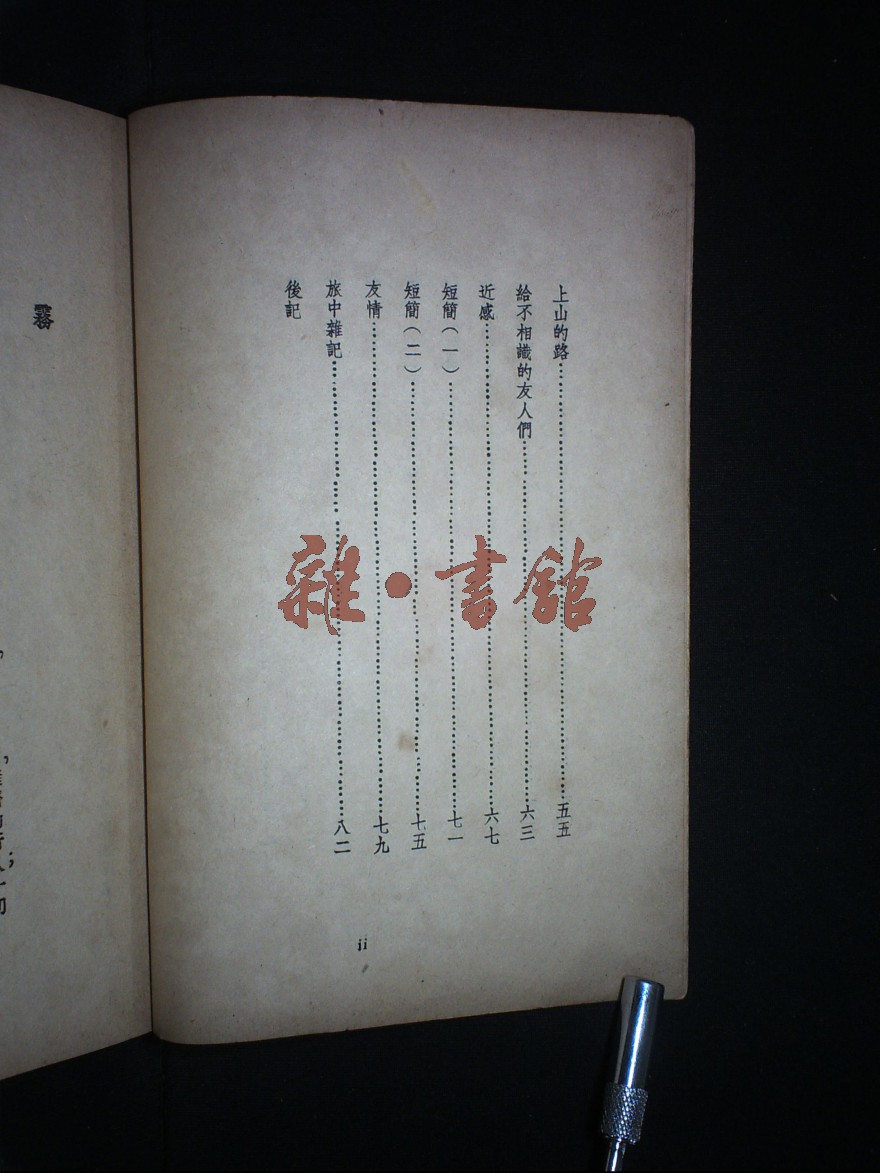 上山的路……五五
給不相識的友人們……六三
近感……六七
短簡(一)……七一
短簡(二)……七五
友情……七九
旅中雜記……八二
後記
ii
霧
雜·書館